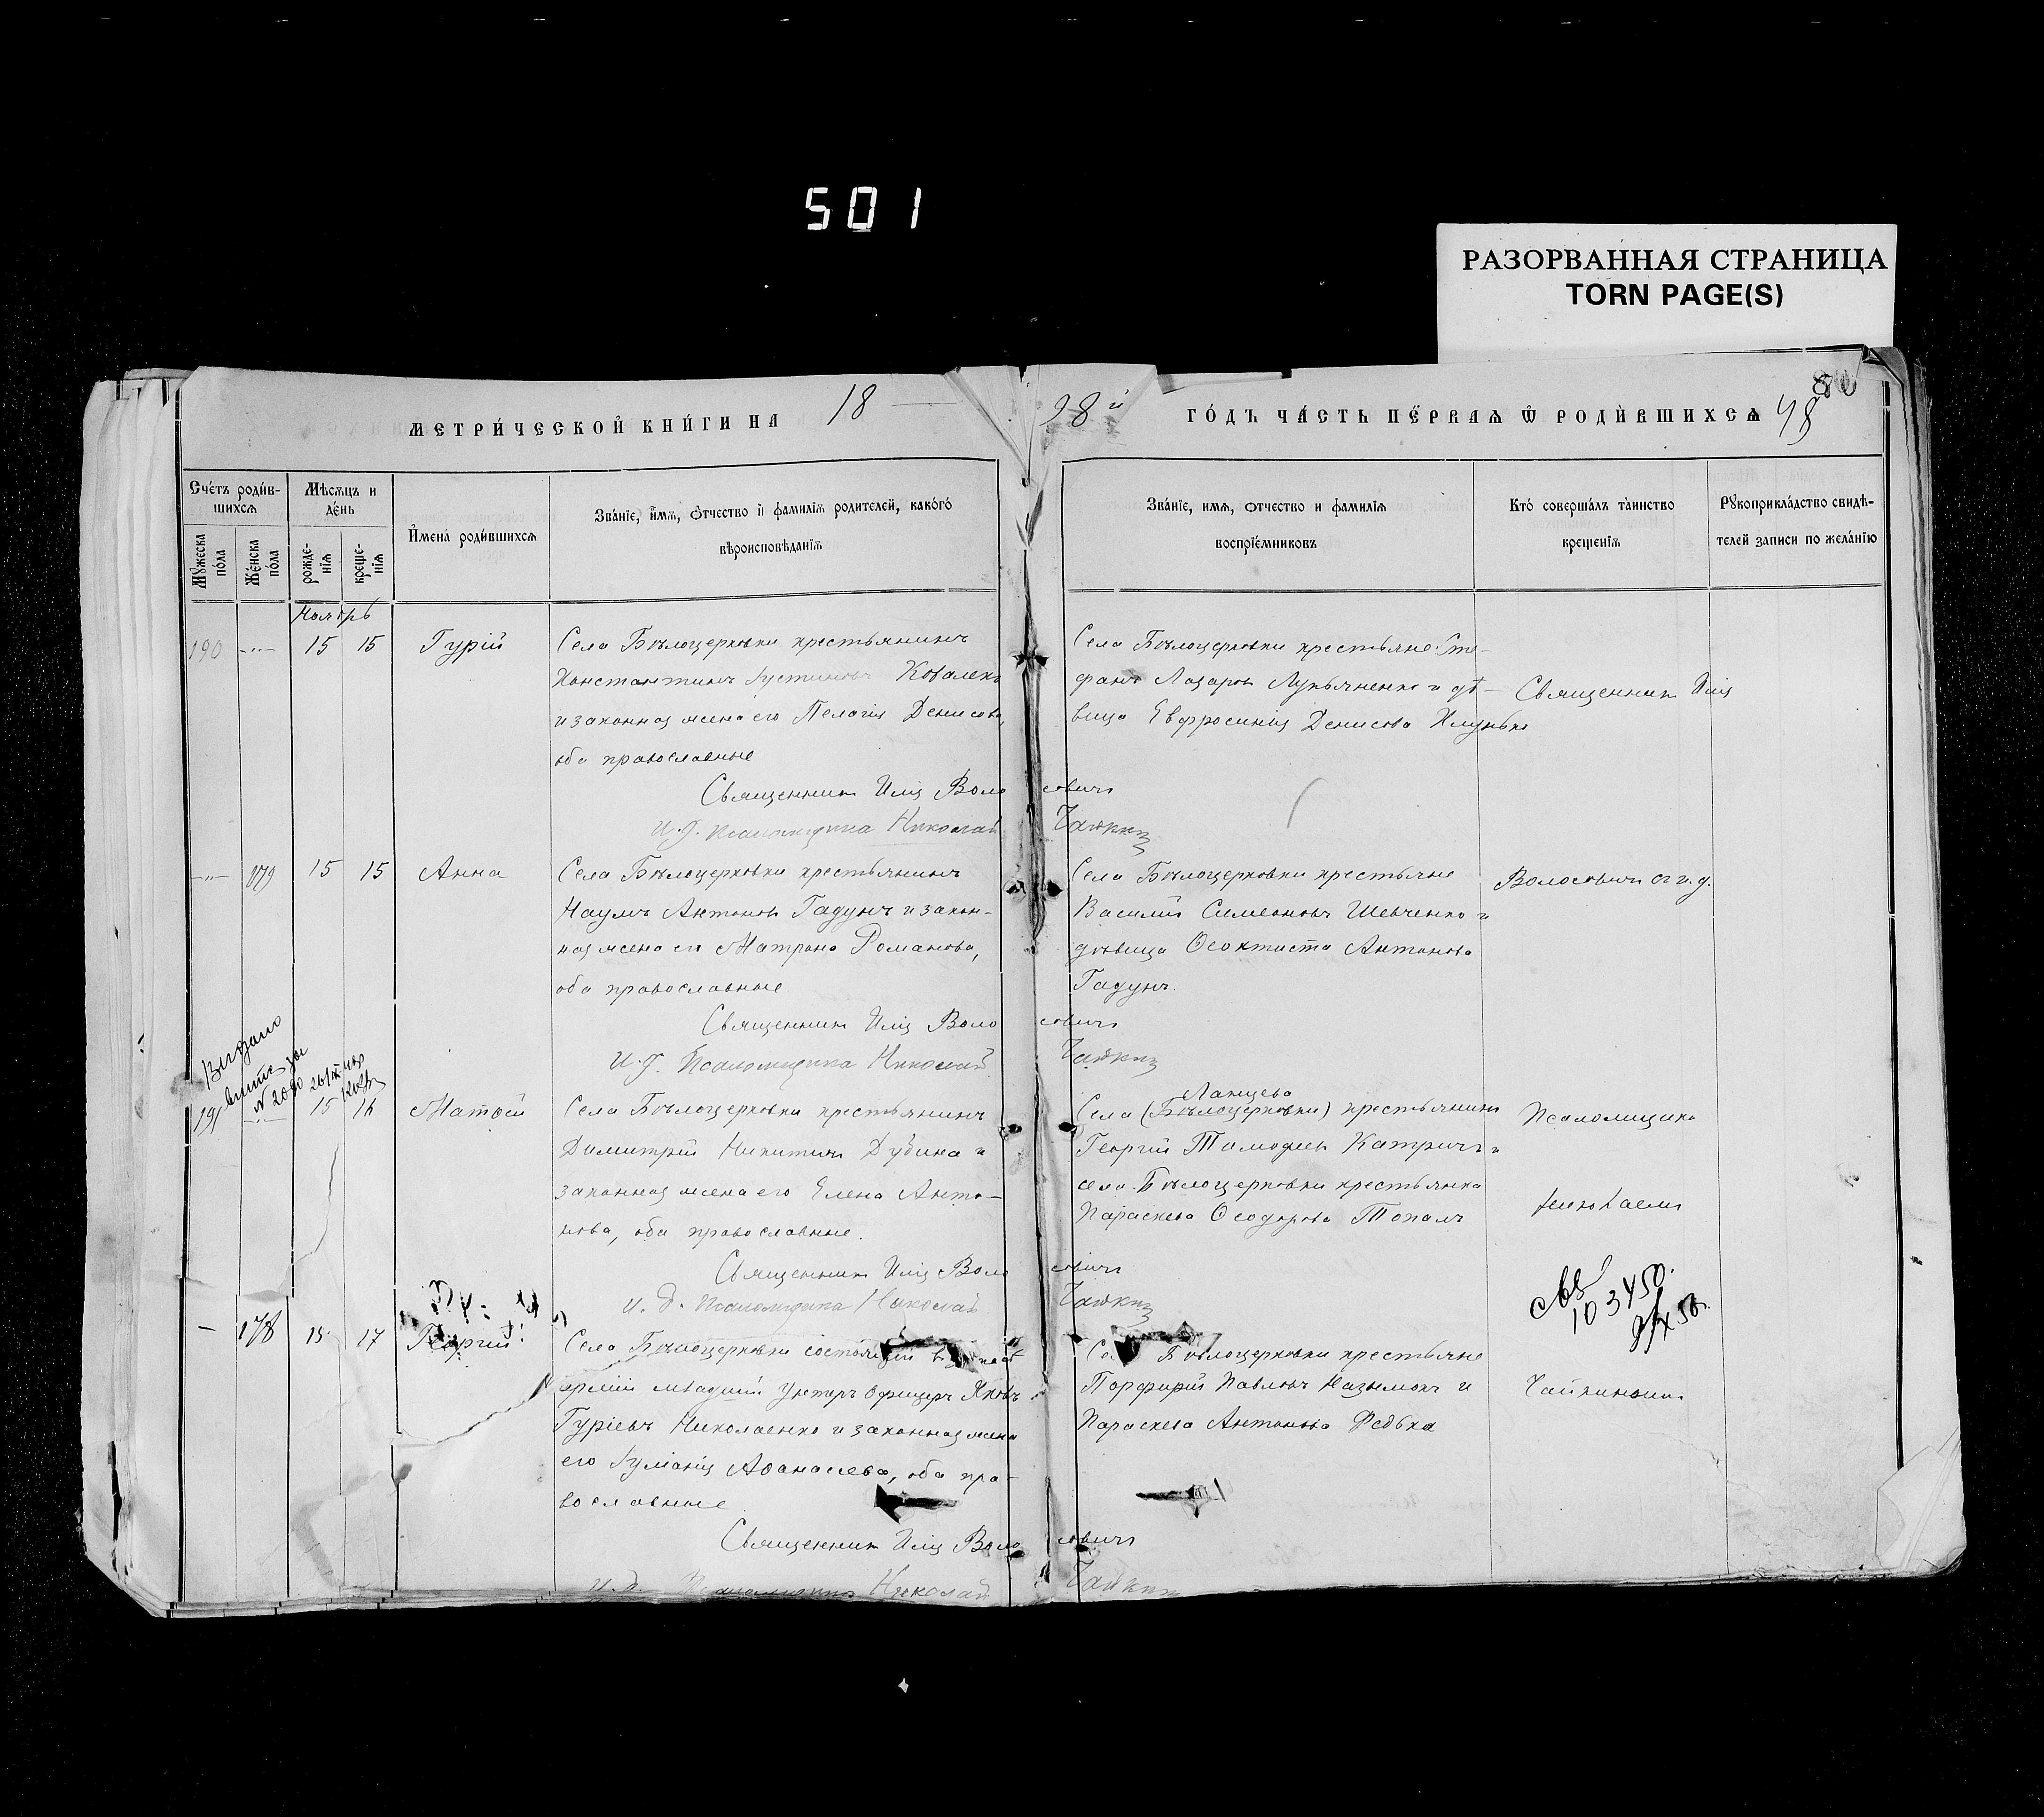 501
РАЗОРВАННАЯ СТРАНИЦА
TORN PAGE(S)
МЕТРИ́ЧЕСКОЙ КНИ́ГИ НА 18
98й ГО́ДЪ ЧА́СТЬ ПЕ́РВАѦ Ѿ РОДИ́ВШИХСѦ 48
Сче́тъ роди́в-
шихсѧ
Мѣсѧцъ и
де́нь
Мꙋжеска
по́ла
Же́нска
по́ла
рожде-
нїѧ
креще-
нїѧ
И҆мена̀ роди́вшихсѧ
Зва́нїе, и҆́мѧ, ѻ҆́тчество и҆ фамилїѧ родителей, како́гѡ
вѣроисповѣ́данїѧ
Зва́нїе, имѧ, ѻтчество и фамилїѧ
воспрїе́мниковъ
Кто̀ соверша́лъ та̀инство
креще́нїѧ
Рꙋкоприкла́дство свидѣ-
телей записи по жела́нїю
Ноябрь
190 -"- 15 15 Гурій
Села Бѣлоцерковки крестьянинъ
Константинъ Іустиновъ Коваленко
и законная жена его Пелагія Денисова,
оба православные
Священникъ Илія Воло
совичъ
И. д. псаломщика Николай
Чайкинъ
Села Бѣлоцерковки крестьяне: Сте-
фанъ Лазаревъ Лукьяненко и дѣ-
вица Евфросинія Денисова
Священникъ Илія
-"- 179 15 15 Анна
Села Бѣлоцерковки крестьянинъ
Наумъ Антоновъ Гадунъ и закон-
ная жена его Матрона Романова,
оба православные
Священникъ Илія Воло
совичъ
И. д. Псаломщика Николай
Чайкинъ
Села Бѣлоцерковки крестьяне
Василій Симеоновъ Шевченко и
дѣвица Ѳеоктиста Антонова
Гадунъ.
Волосовичъ съ и. д.
Выдано
№ 2080
191 -"- 15 16 Матѳей
Села Бѣлоцерковки крестьянинъ
Димитрій Никитинъ Дубина и
законная жена его Елена Анто-
нова, оба православные.
Священникъ Илія Воло
совичъ
и. д. псаломщика Николай
Чайкинъ
Села (Бѣлоцерковки) крестьянинъ
Георгій Тимоѳеевъ Катричъ и
села Бѣлоцерковки крестьянка
Параскева Ѳеодорова Топалъ
Псаломщика
Николаемъ
103450.
— 178 15 17 Георгій
Села Бѣлоцерковки состоящій въ запасѣ
арміи младшій унтеръ офицеръ Яковъ
Гуріевъ Николаенко и законная жена
его Іуліанія Аѳанасіева, оба пра-
вославные
Священникъ Илія Воло
совичъ
и. д. Псаломщика Николай
Чайкинъ
Села Бѣлоцерковки крестьяне
Порфирій Павловъ Назымокъ и
Параскева Антонова Федька
Чайкинымъ